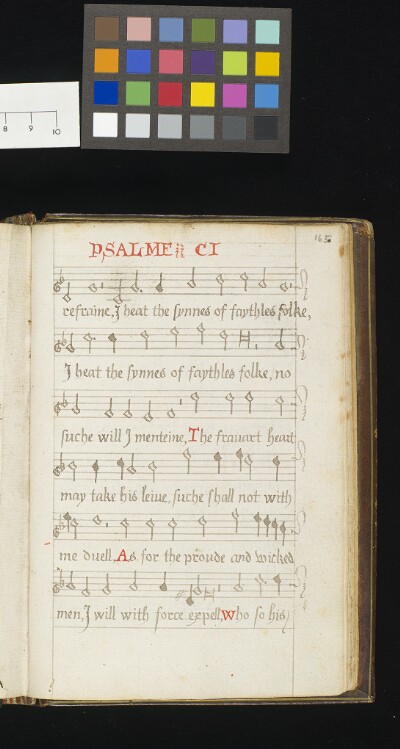 8 9 10
165
PSALME CI
refraine, J heat the synnes of faythles folke,
J heat the synnes of faythles folke, no
suche will J menteine, The frauart heart
may take his leiue, suche shall not with
me duell, As for the proude and wicked
men, J will with force expell, who so his